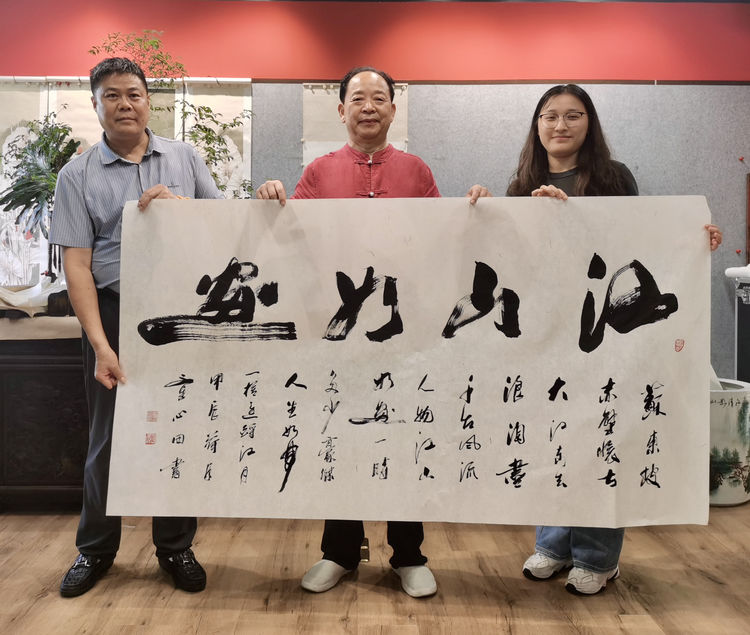 江山如畫
蘇東坡
赤壁懷古
大江東去
浪淘盡
千古風流
人物江山
如畫一時
多少豪傑
人生如夢
一樽還酹江月
甲辰 月
心田書